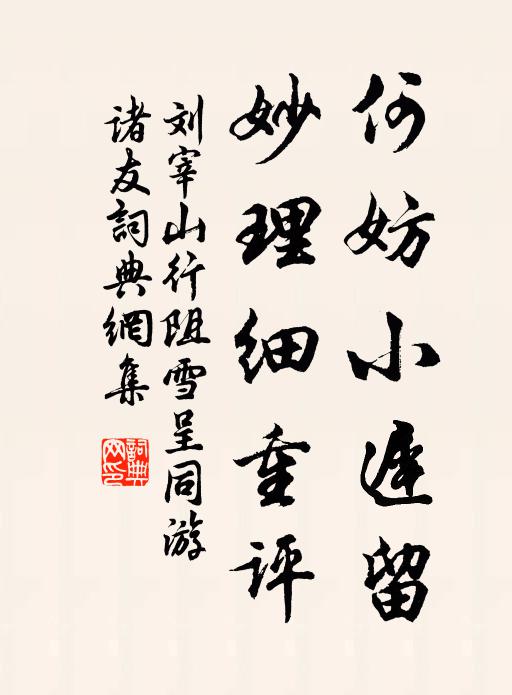 何妨小遲留
妙理细重评
刘宰山行阻雪呈同游
诸友詞典網集
詞典网印